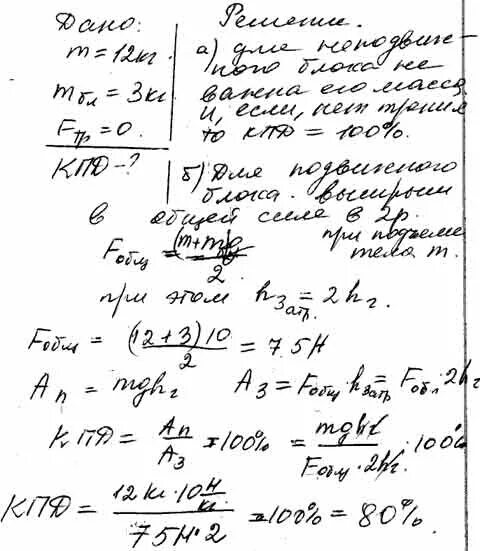 Дано:
m = 12кг
mбл = 3кг
Fтр = 0.
КПД - ?
Решение.
а) для неподвиж-
ного блока не
важна его масса
и, если, нет трения
то КПД = 100%.
б) Для подвижного
блока. выигрыш
в общей силе в 2р.
при подъеме
тела m.
Fобщ = (m+m)g / 2
при этом hзатр. = 2hг.
Fобщ = (12+3)10 / 2 = 75Н
Aп = mghг Aз = Fобщ·hзатр = Fобщ·2hг
КПД = Aп / Aз · 100% = mghг / Fобщ·2hг · 100%
КПД = 12кг·10 Н/кг / 75Н·2 · 100% = 80%